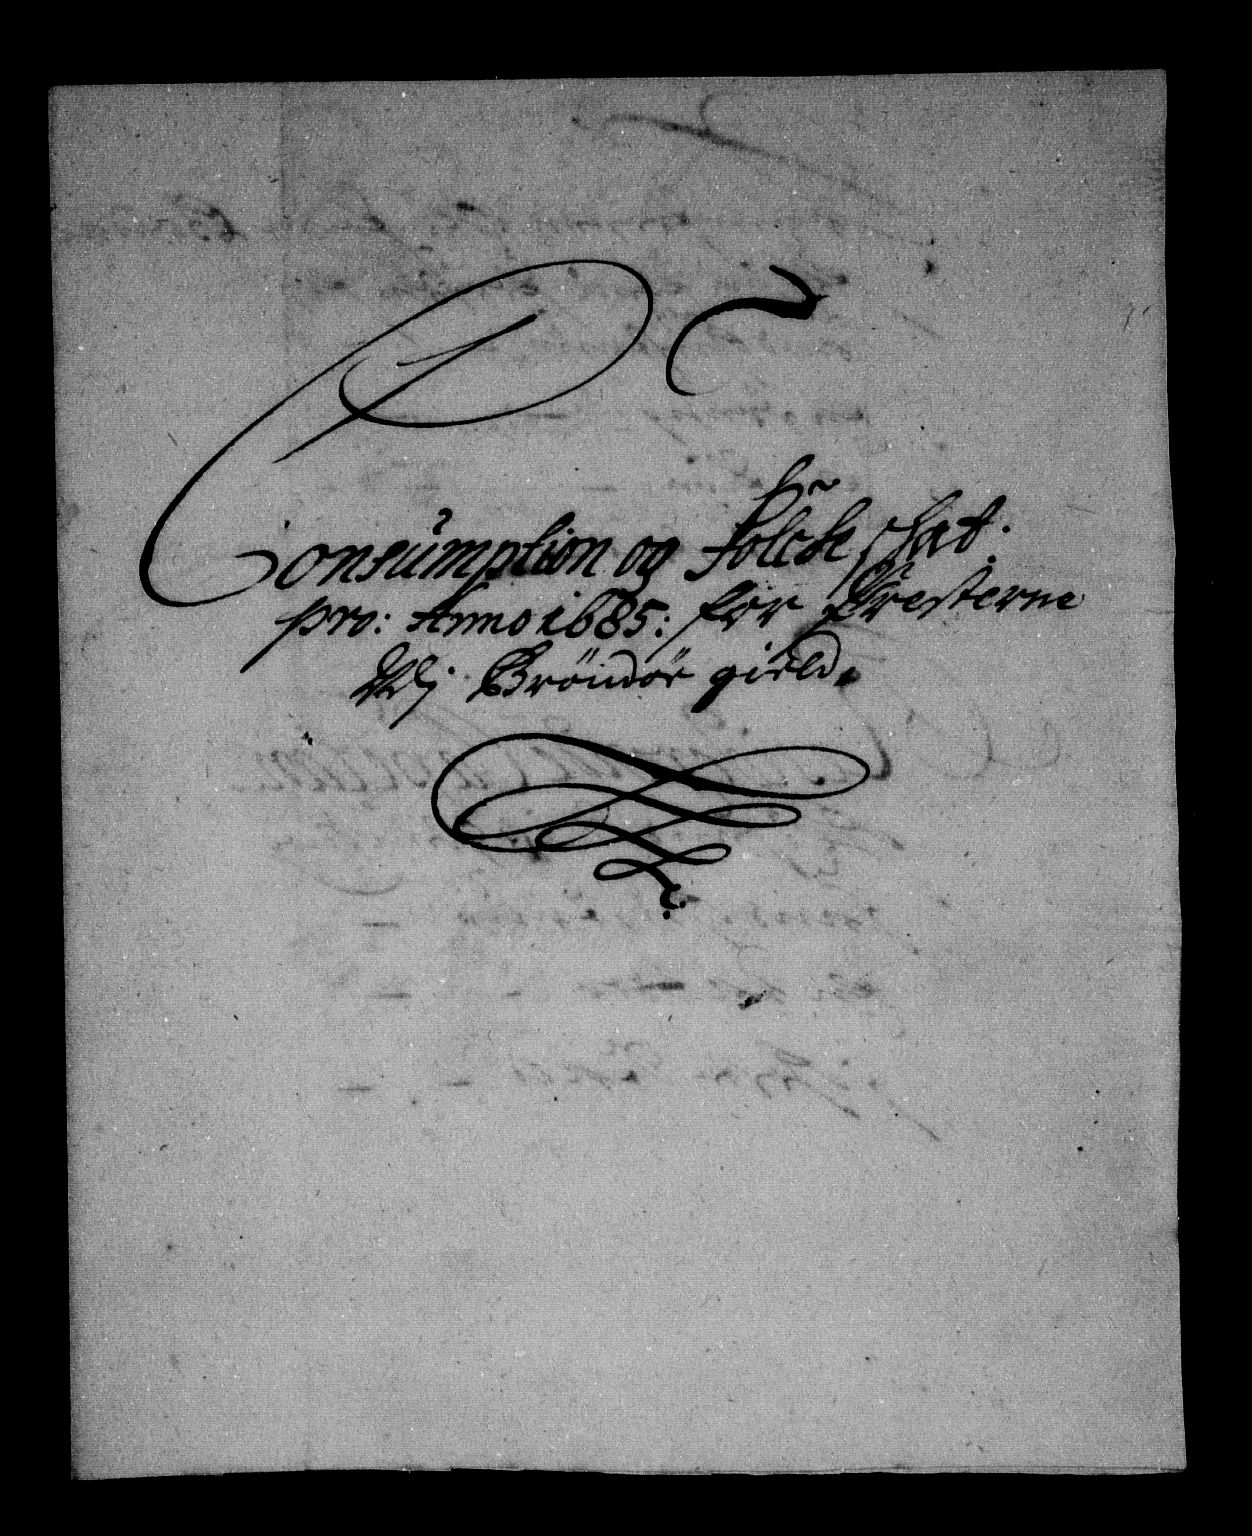 Consumption og Folckeschat.
pro: Anno 1685: for Presterne
Wj Brönöe gield.